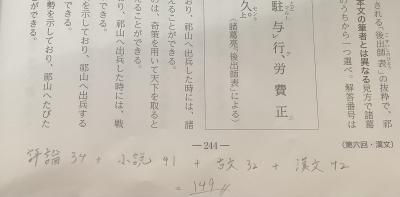 される。「後出師表」の抜粋で、祁
本文の筆者とは異なる見方で諸葛
のうちから一つ選べ。解答番号は
駐与行、労費正
久上。
(諸葛亮「後出師表」による)
おり、祁山へ出兵した時には、諸
えることができる。
のは、奇策を用いて天下を取ると
ことができる。
を示しており、祁山へ出兵した時には、戦
できる。
を示しており、祁山へ出兵する
できる。
勢を示しており、祁山へたびた
ができる。
—244—
(第六回・漢文)
評論 34 + 小説 41 + 古文 32 + 漢文 42
= 149